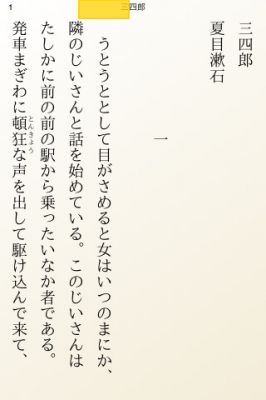 1
三四郎
三四郎
夏目漱石
一
うとうととして目がさめると女はいつのまにか、
隣のじいさんと話を始めている。このじいさんは
たしかに前の前の駅から乗ったいなか者である。
発車まぎわに頓狂な声を出して駆け込んで来て、
とんきょう